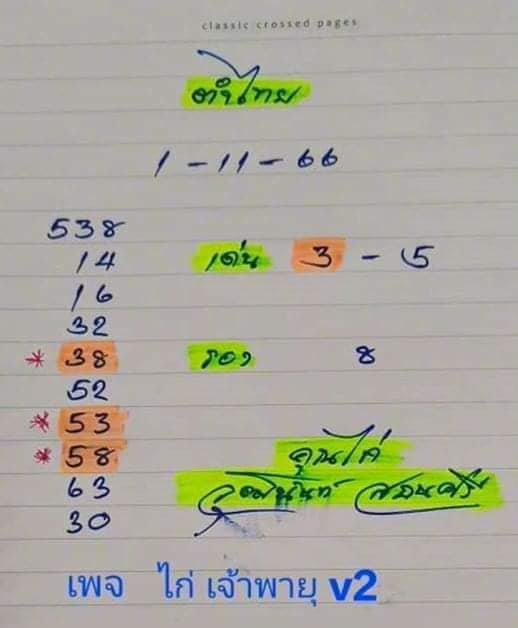 classic crossed pages
1-11-66
538
14
เด่น 3 - 5
16
32
* 38
รอง 8
52
* 53
* 58
คุณไก่
63
30
เพจ ไก่ เจ้าพายุ v2